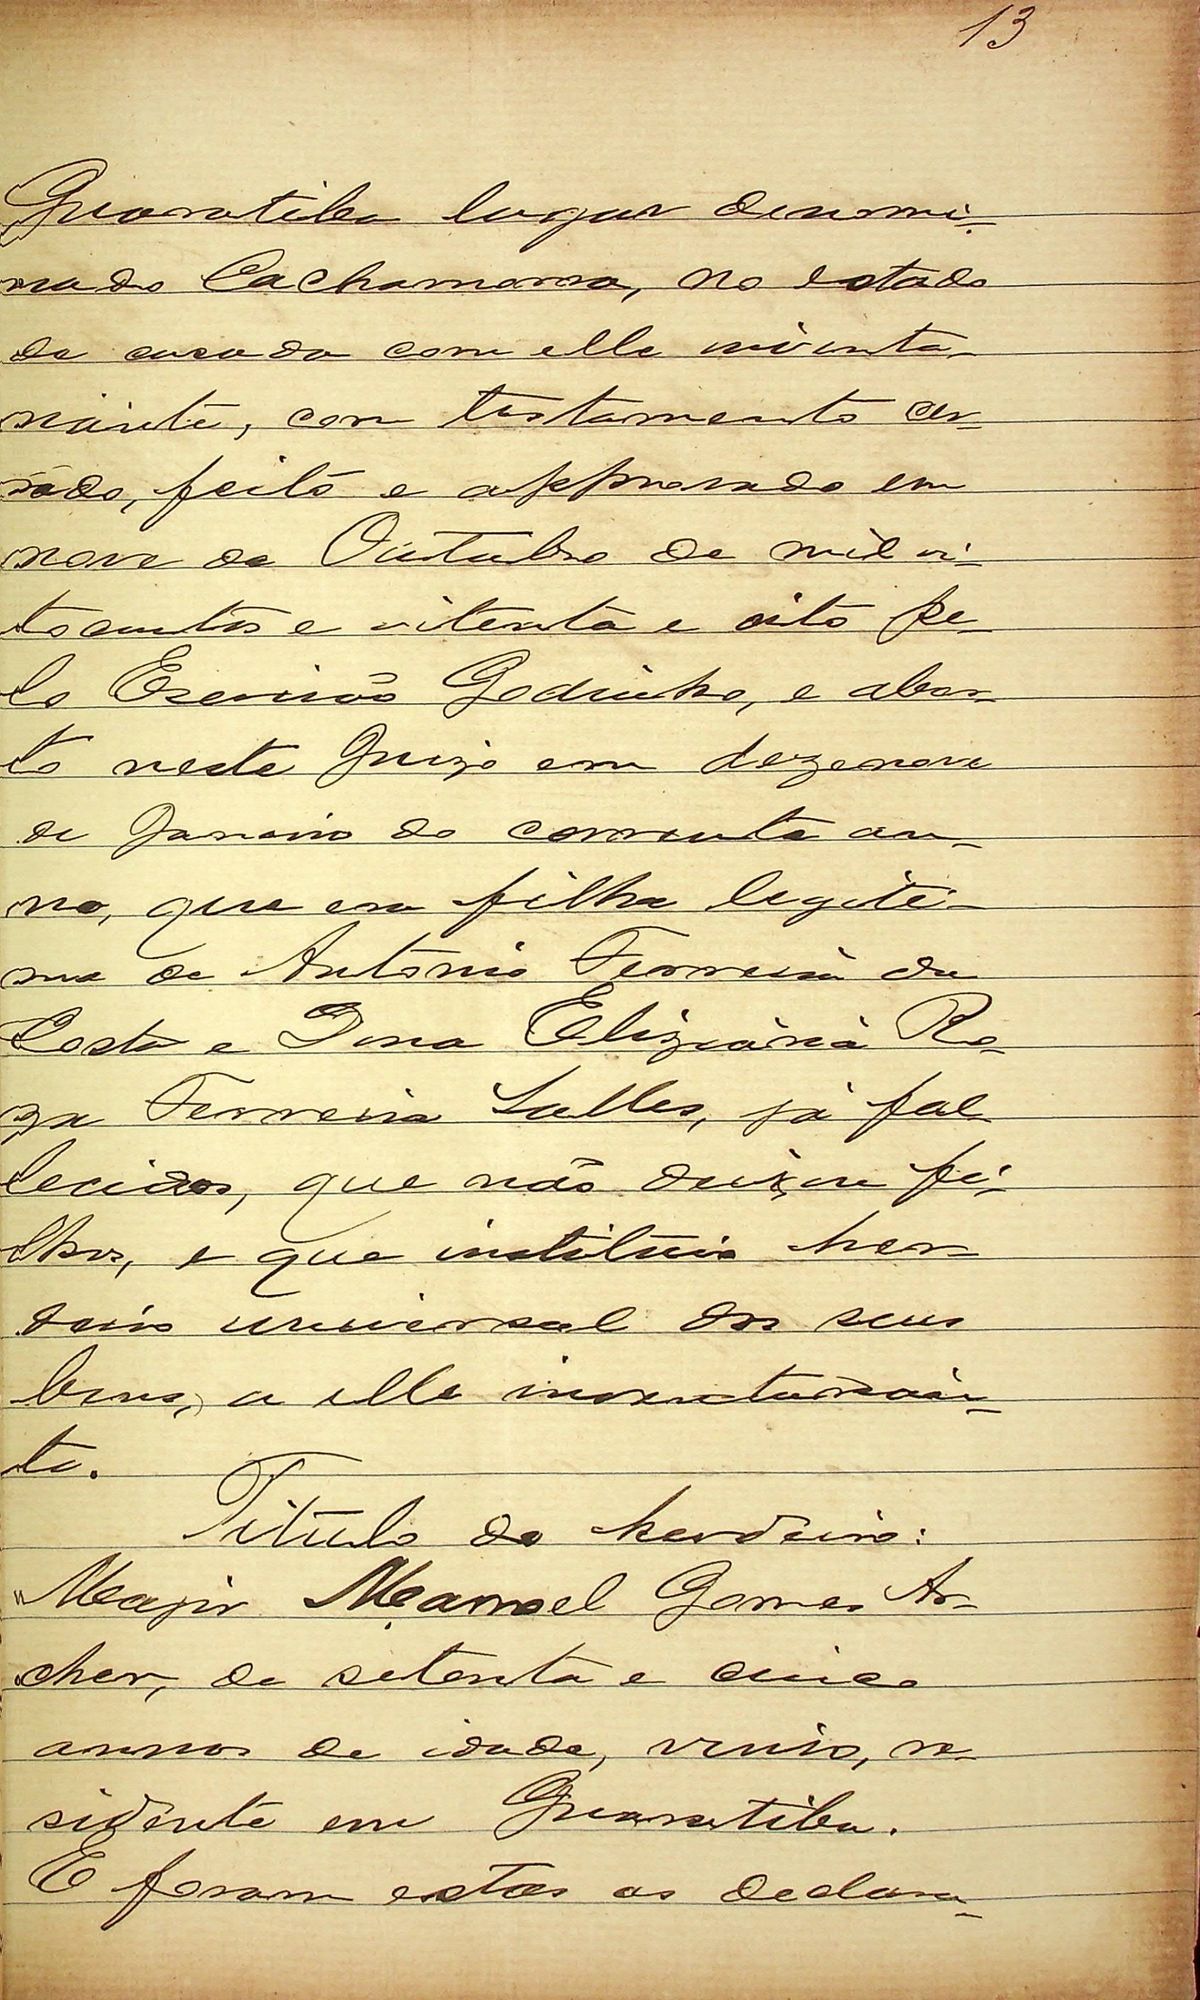 13
Guaratiba lugar denomi-
nado Cachamorra, no estado
de casada com elle inventa-
riante, com testamento cer-
rado, feito e approvado em
nove de Outubro de mil oi-
tocentos e oitenta e oito pe-
lo Escrivão Godinho, e aber-
to neste Juizo em dezenove
de Janeiro do corrente an-
no, que era filha legiti-
ma de Antonio Ferreira da
Costa e Dona Eliziaria Ro-
za Ferreira Salles, já fal-
lecidos, que não deixou fi-
lhos, e que instituio her-
deiro universal dos seus
bens, a elle inventarian-
te.
Titulo do herdeiro:
"Major Manoel Gomes Ar-
cher, de setenta e cinco
annos de idade, viuvo, re-
sidente em Guaratiba.
E foram estas as declara-